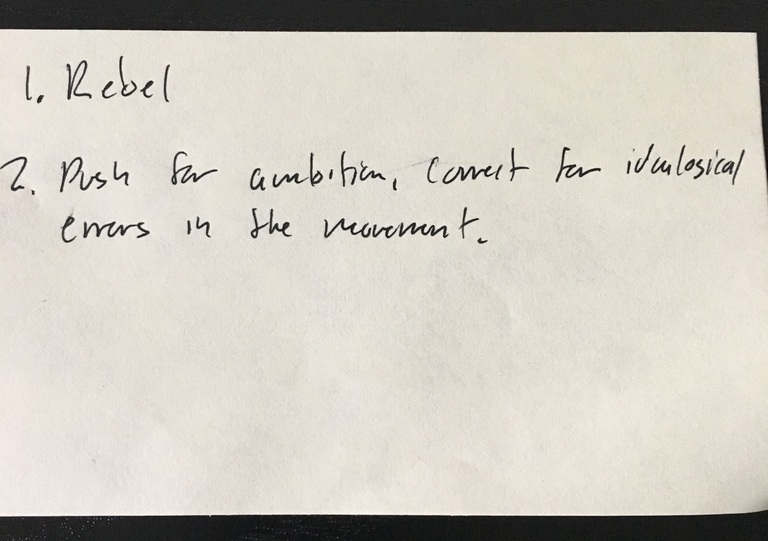 1. Rebel
2. Push for ambition, correct for idealogical
errors in the movement.